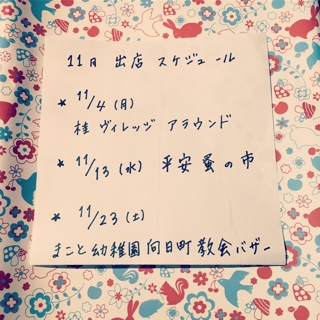 11月 出店 スケジュール
★ 11/4(月)
桂 ヴィレッジ アラウンド
★ 11/13(水) 平安蚤の市
★ 11/23(土)
まこと幼稚園向日町教会バザー